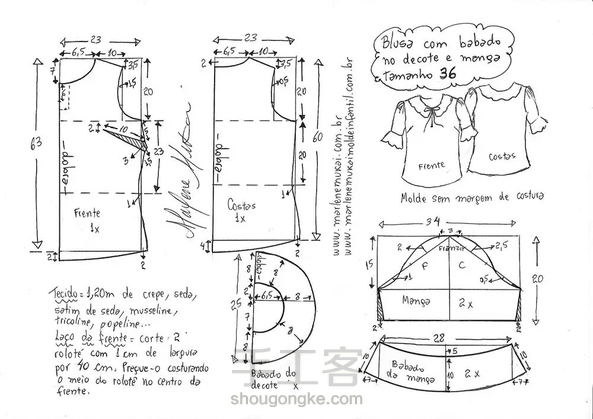 Blusa com babado
no decote e manga
tamanho 36
Frente
Costas
Molde sem margem de costura
www.marlenemukai.com.br
www.marlenemukaimoldeinfantil.com.br
Marlene Mukai
23
6,5
10
7
3,5
1,5
20
63
dobra
2
10
3
23
1
Frente
1x
2
2
23
6,5
10
2
3,5
0,5
20
60
dobra
20
1
Costas
1x
4
2
34
3
2
Franzir
2,5
15
F
C
1
0,5
20
Manga
2x
2
2
28
5
10
10
Babado
da manga
10
2x
7
7
dobra
8
8
25
6,5
8
7
8
8
Babado do
decote
x
Tecido = 1,20m de crepe, seda,
satim de seda, musseline,
tricoline, popeline...
Laço da frente = corte 2
rolotê com 1 cm de largura
por 40 cm. Pregue-o costurando
o meio do rolotê no centro da
frente.
手工客
shougongke.com